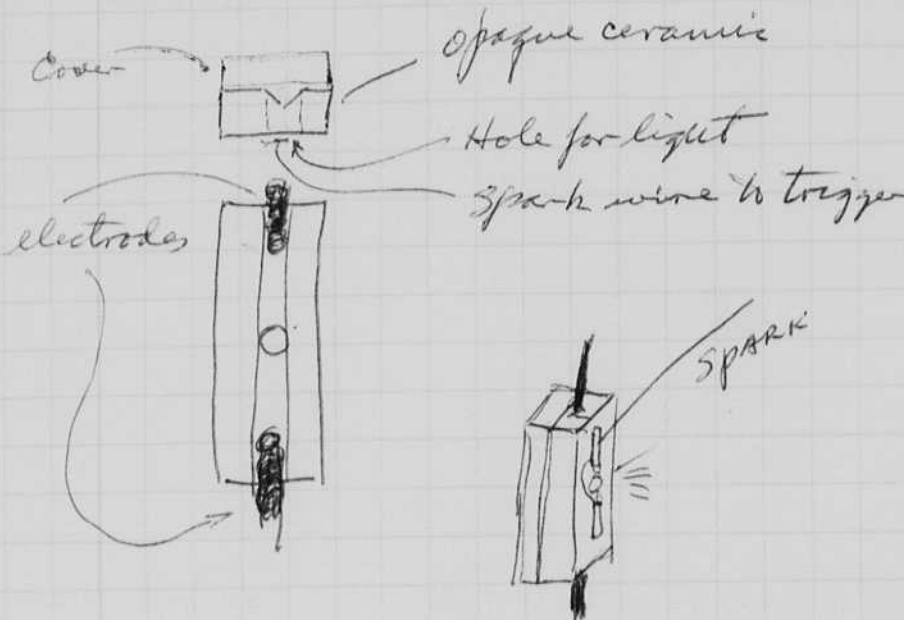 Cover
opaque ceramic
Hole for light
spark wire to trigger
electrodes
SPARK